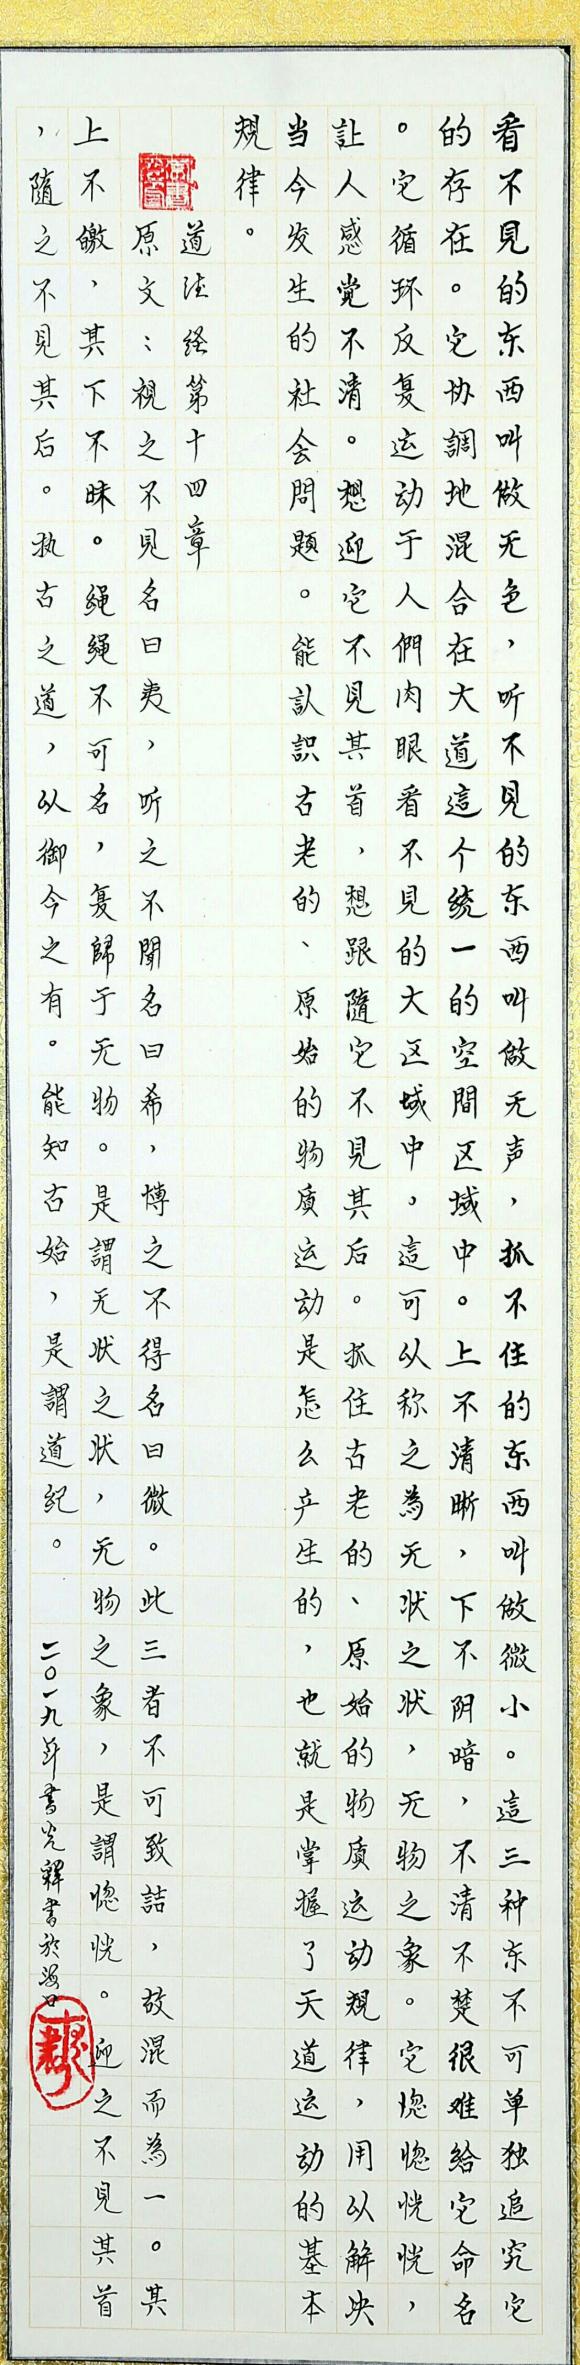 看不見的东西叫做无色，听不見的东西叫做无声，抓不住的东西叫做微小。這三种东不可单独追究它
的存在。它协調地混合在大道這个统一的空間区域中。上不清晰，下不阴暗，不清不楚很难给它命名
。它循环反复运动于人們肉眼看不見的大区域中。這可以称之為无状之状，无物之象。它惚惚恍恍，
让人感觉不清。想迎它不見其首，想跟隨它不見其后。抓住古老的、原始的物质运动規律，用以解决
当今发生的社会問題。能认识古老的、原始的物质运动是怎么产生的，也就是掌握了天道运动的基本
規律。
道德经第十四章
原文：視之不見名曰夷，听之不聞名曰希，慱之不得名曰微。此三者不可致詰，故混而為一。其
上不皦，其下不昧。绳绳不可名，复歸于无物。是謂无状之状，无物之象，是謂惚恍。迎之不見其首
，隨之不見其后。执古之道，以御今之有。能知古始，是謂道紀。
二〇一九年書光釋書於海口